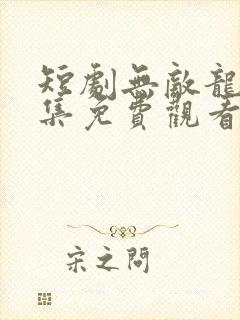 短劇無敵龍
集免費觀看
宋之問